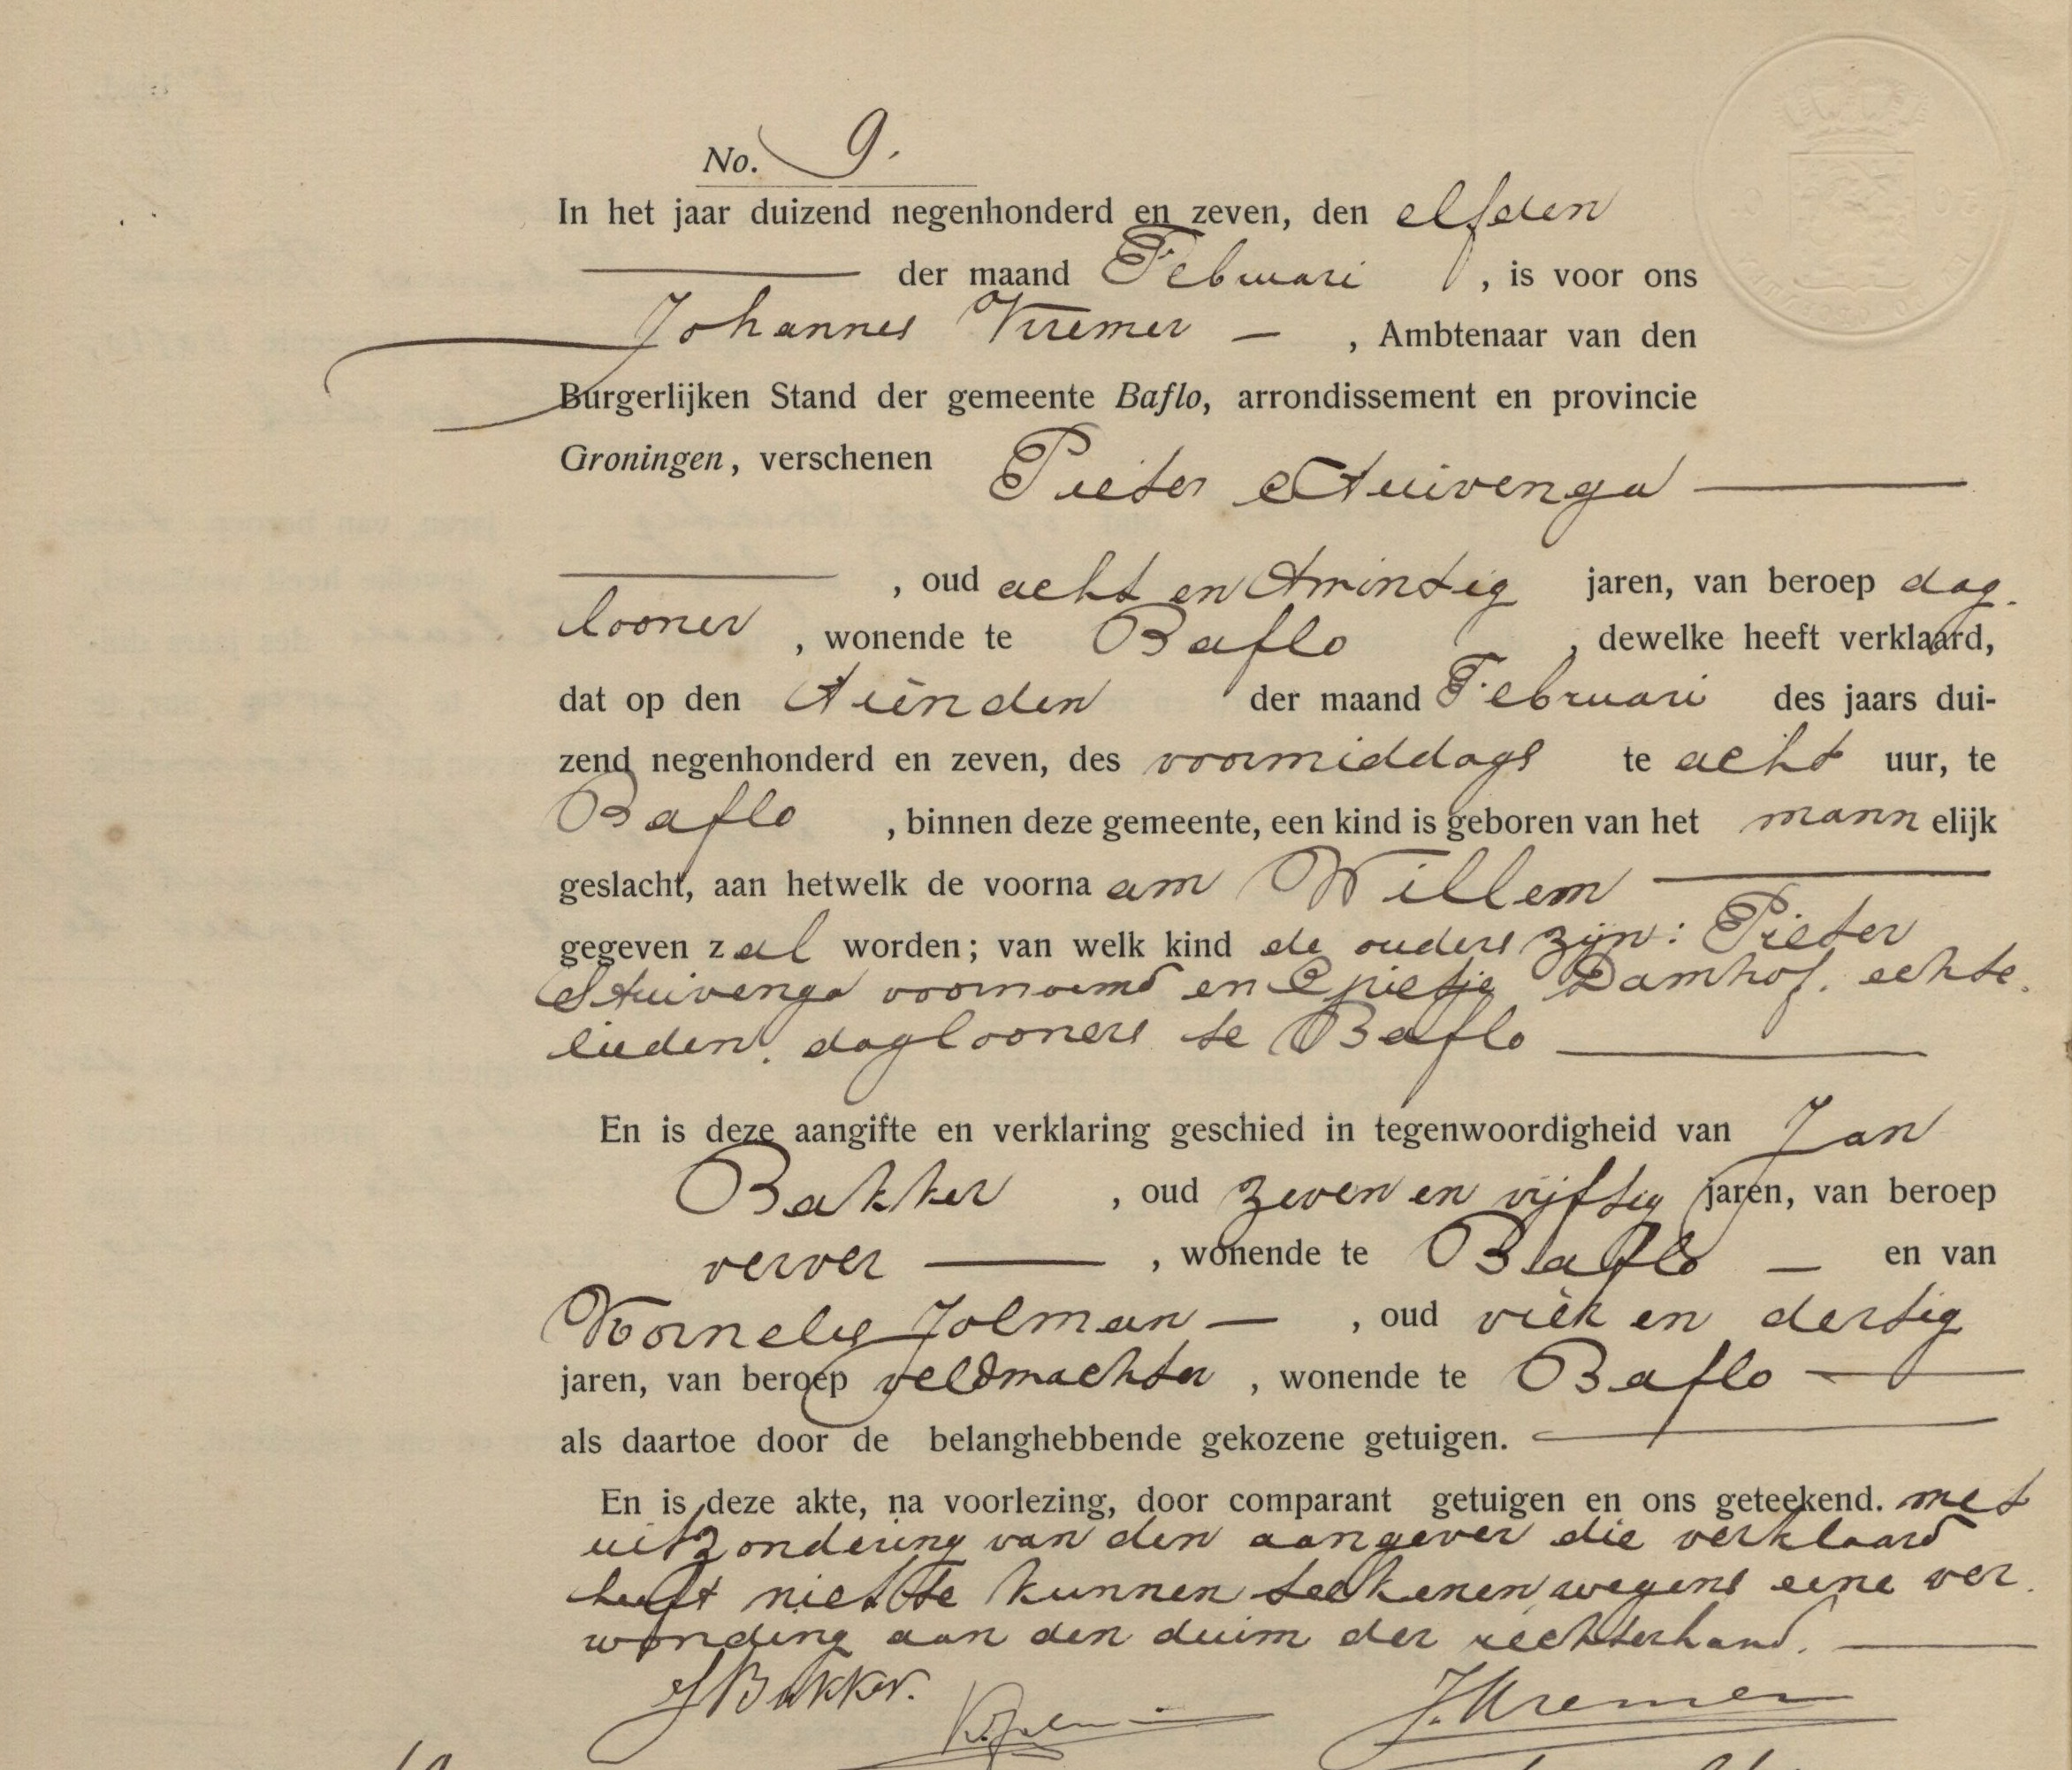 No. 9.
In het jaar duizend negenhonderd en zeven, den elfden
der maand Februari, is voor ons
Johannes Kremer, Ambtenaar van den
Burgerlijken Stand der gemeente Baflo, arrondissement en provincie
Groningen, verschenen Pieter Stuivenga
, oud acht en twintig jaren, van beroep dag-
looner, wonende te Baflo, dewelke heeft verklaard,
dat op den tienden der maand Februari des jaars dui-
zend negenhonderd en zeven, des voormiddags te acht uur, te
Baflo, binnen deze gemeente, een kind is geboren van het mannelijk
geslacht, aan hetwelk de voornaam Willem
gegeven zal worden; van welk kind de ouders zijn: Pieter
Stuivenga voornoemd en Epietje Damhof, echte-
lieden, daglooners te Baflo
En is deze aangifte en verklaring geschied in tegenwoordigheid van Jan
Bakker, oud zeven en vijftig jaren, van beroep
verver, wonende te Baflo en van
Kornelis Jolman, oud vier en dertig
jaren, van beroep veldwachter, wonende te Baflo
als daartoe door de belanghebbende gekozene getuigen.
En is deze akte, na voorlezing, door comparant getuigen en ons geteekend. met
uitzondering van den aangever die verklaard
heeft niet te kunnen teekenen wegens eene ver-
wonding aan den duim der rechterhand.
J Bakker. K. Jolman J. Kremer